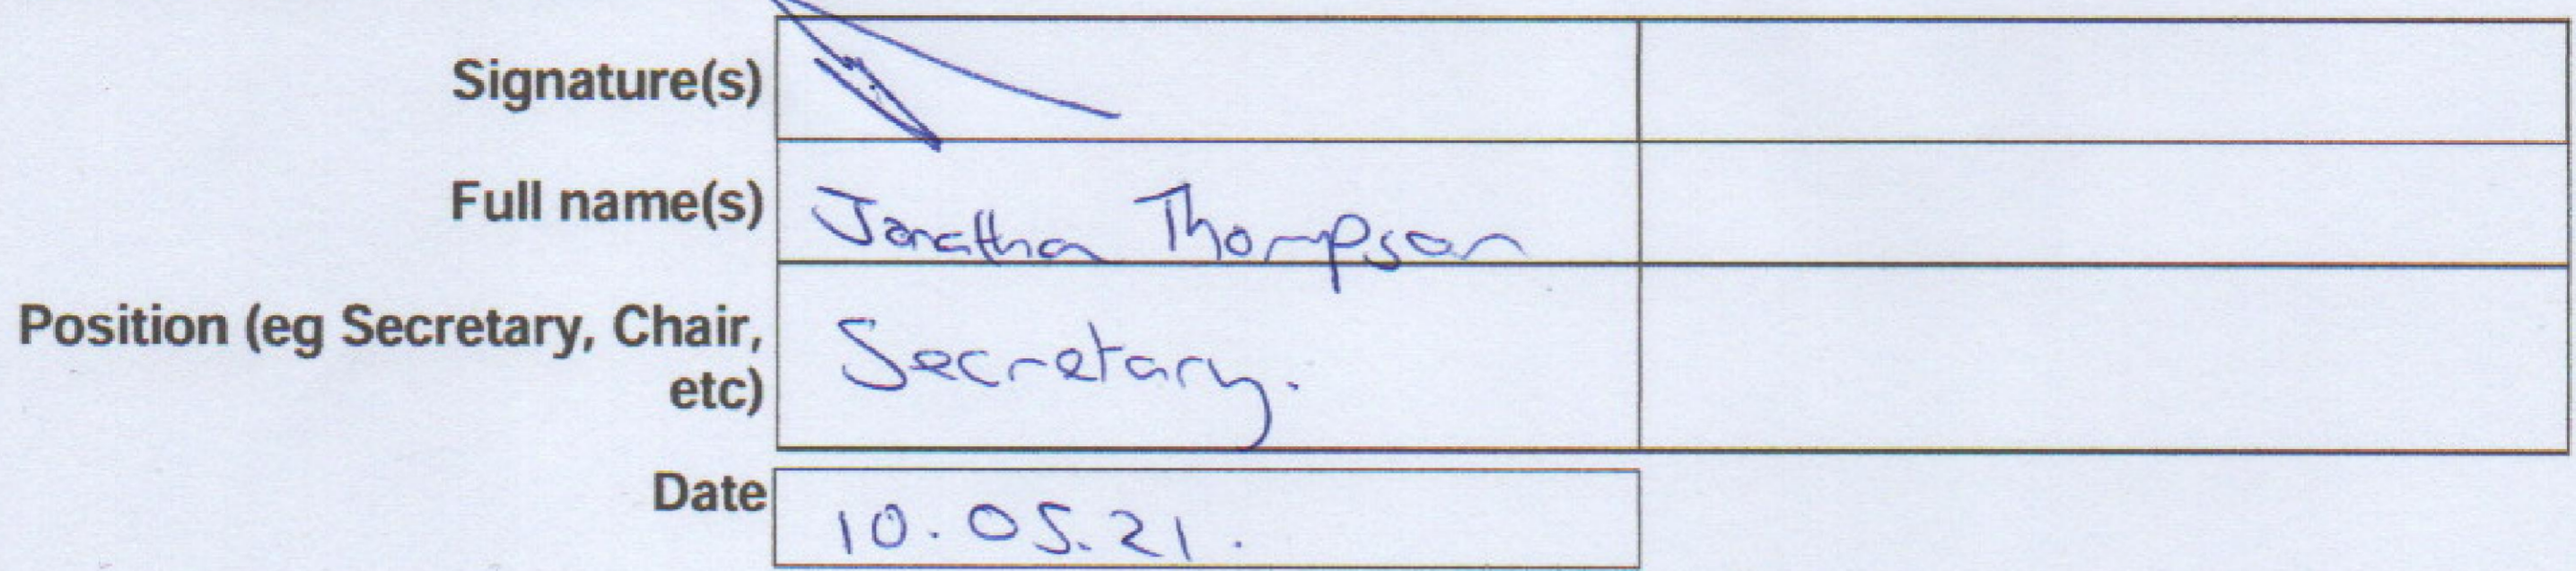 Signature(s)
Full name(s) Jonathan Thompson
Position (eg Secretary, Chair,
etc) Secretary.
Date 10.05.21.